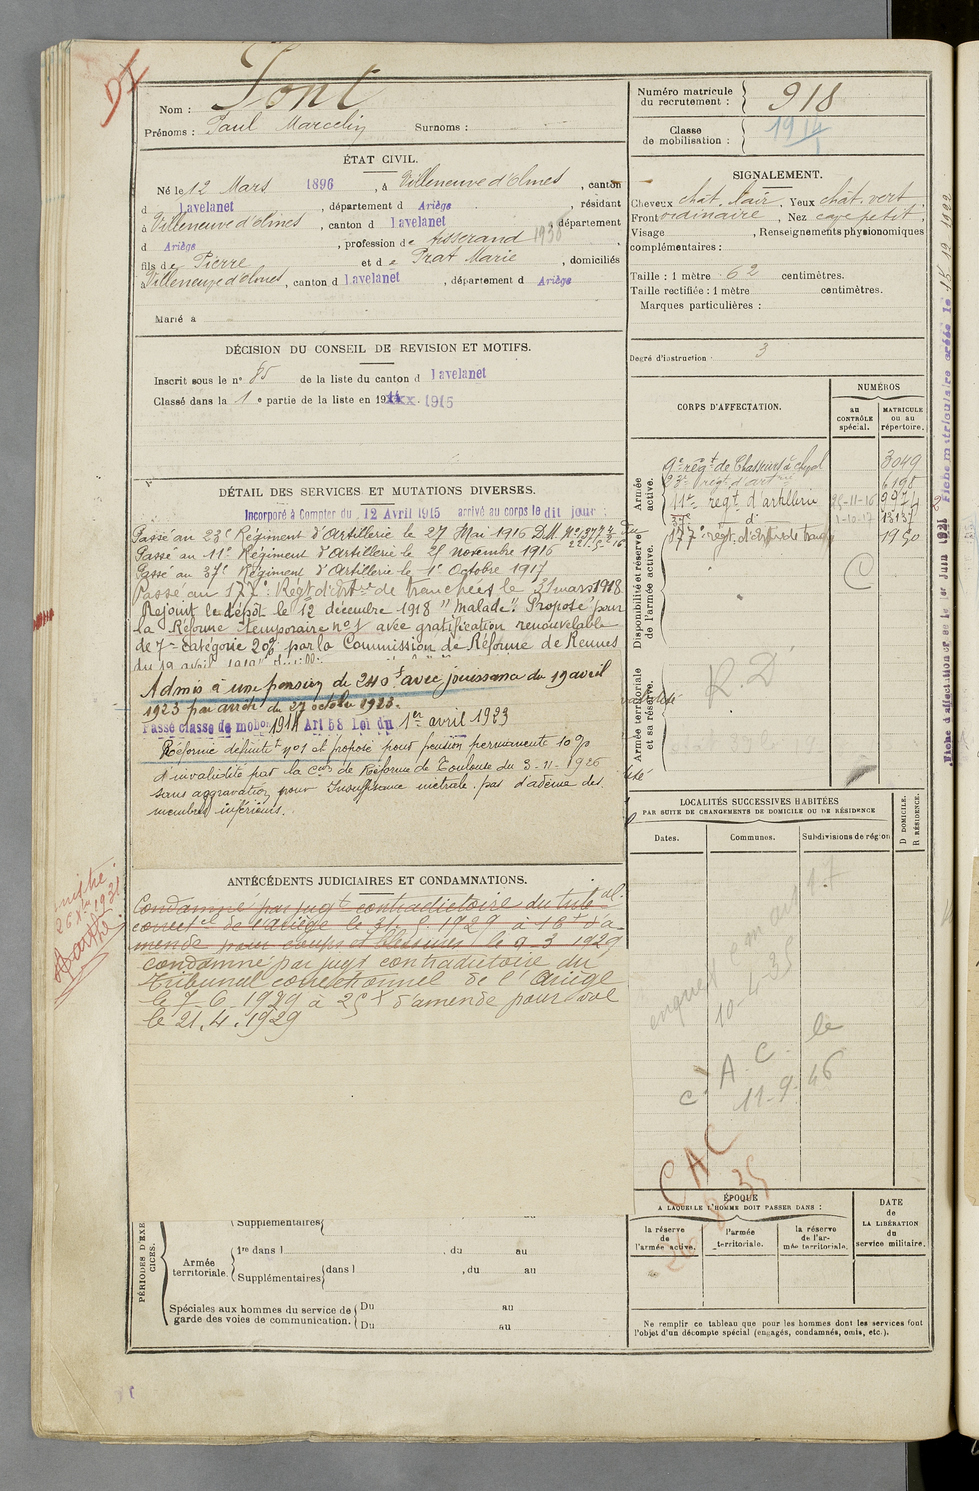 DI
Nom : Font
Prénoms : Paul Marcelin Surnoms :
ÉTAT CIVIL.
Né le 12 Mars 1896, à Villeneuve d'Olmes, canton
d Lavelanet, département d Ariège, résidant
à Villeneuve d'Olmes, canton d Lavelanet, département
d Ariège, profession de tisserand 1936
fils de Pierre et de Prat Marie, domiciliés
à Villeneuve d'Olmes, canton d Lavelanet, département d Ariège
Marié à
DÉCISION DU CONSEIL DE REVISION ET MOTIFS.
Inscrit sous le n° 85 de la liste du canton d Lavelanet
Classé dans la 1e partie de la liste en 1915
DÉTAIL DES SERVICES ET MUTATIONS DIVERSES.
Incorporé à Compter du 12 Avril 1915 arrivé au corps le dit jour :
Passé au 23e Régiment d'Artillerie le 27 Mai 1916 D.M.
Passé au 11e Régiment d'Artillerie le 25 novembre 1916
Passé au 37e Régiment d'Artillerie le 1er Octobre 1917
Passé au 177e Régt d'Artie de tranchées le 31 mars 1918
Rejoint le dépôt le 12 décembre 1918 "Malade". Proposé pour
la Réforme temporaire n°1 avec gratification renouvelable
de 7e catégorie 20% par la Commission de Réforme de Rennes
du 19 avril
Admis à une pension de 240f avec jouissance du 19 avril
1923 par arrêté du 27 octobre 1923.
Passé classe de mobon 1914 Art 58 Loi du 1er avril 1923
Réformé définitt n°1 et proposé pour pension permanente 10%
d'invalidité par la Con de Réforme de Toulouse du 3-11-1926
sans aggravation pour Insuffisance mitrale. pas d'œdème des
membres inférieurs.
ANTÉCÉDENTS JUDICIAIRES ET CONDAMNATIONS.
Condamné par jugt contradictoire du tribal
correctel de l'Ariège le 31. 5. 1929 à 16f d'a-
mende pour coups et blessures le 9-3-1929
Condamné par jugt contradictoire du
Tribunal correctionnel de l'Ariège
le 7-6-1929 à 25f d'amende pour vol
le 21.4.1929
PÉRIODES D'EXERCICES.
Supplémentaires
Armée territoriale.
1re dans l , du au
Supplémentaires dans l , du au
Spéciales aux hommes du service de garde des voies de communication.
Du au
Du au
Numéro matricule du recrutement : 918
Classe de mobilisation : 1914
SIGNALEMENT.
Cheveux chât. clair, Yeux chât. vert,
Front ordinaire, Nez cave petit,
Visage , Renseignements physionomiques
complémentaires :
Taille : 1 mètre 62 centimètres.
Taille rectifiée : 1 mètre centimètres.
Marques particulières :
Degré d'instruction : 3
CORPS D'AFFECTATION.
NUMÉROS
au CONTRÔLE spécial.
MATRICULE ou au répertoire.
Armée active.
9e régt de Chasseurs à cheval 3049
23e régt d'artie 6190
11e régt d'artillerie 25-11-16 9974
37e d° 1-10-17 13137
177e régt d'Artie de tranchées 1950
Disponibilité et réserve de l'armée active.
C
Armée territoriale et sa réserve.
R.D
LOCALITÉS SUCCESSIVES HABITÉES
PAR SUITE DE CHANGEMENTS DE DOMICILE OU DE RÉSIDENCE
Dates. Communes. Subdivisions de région
D DOMICILE. R RÉSIDENCE.
10-4-35
C.A.C. le
11-9-46
CAC
ÉPOQUE
A LAQUELLE L'HOMME DOIT PASSER DANS :
la réserve de l'armée active.
l'armée territoriale.
la réserve de l'armée territoriale.
DATE de LA LIBÉRATION du service militaire.
Ne remplir ce tableau que pour les hommes dont les services font
l'objet d'un décompte spécial (engagés, condamnés, omis, etc.).